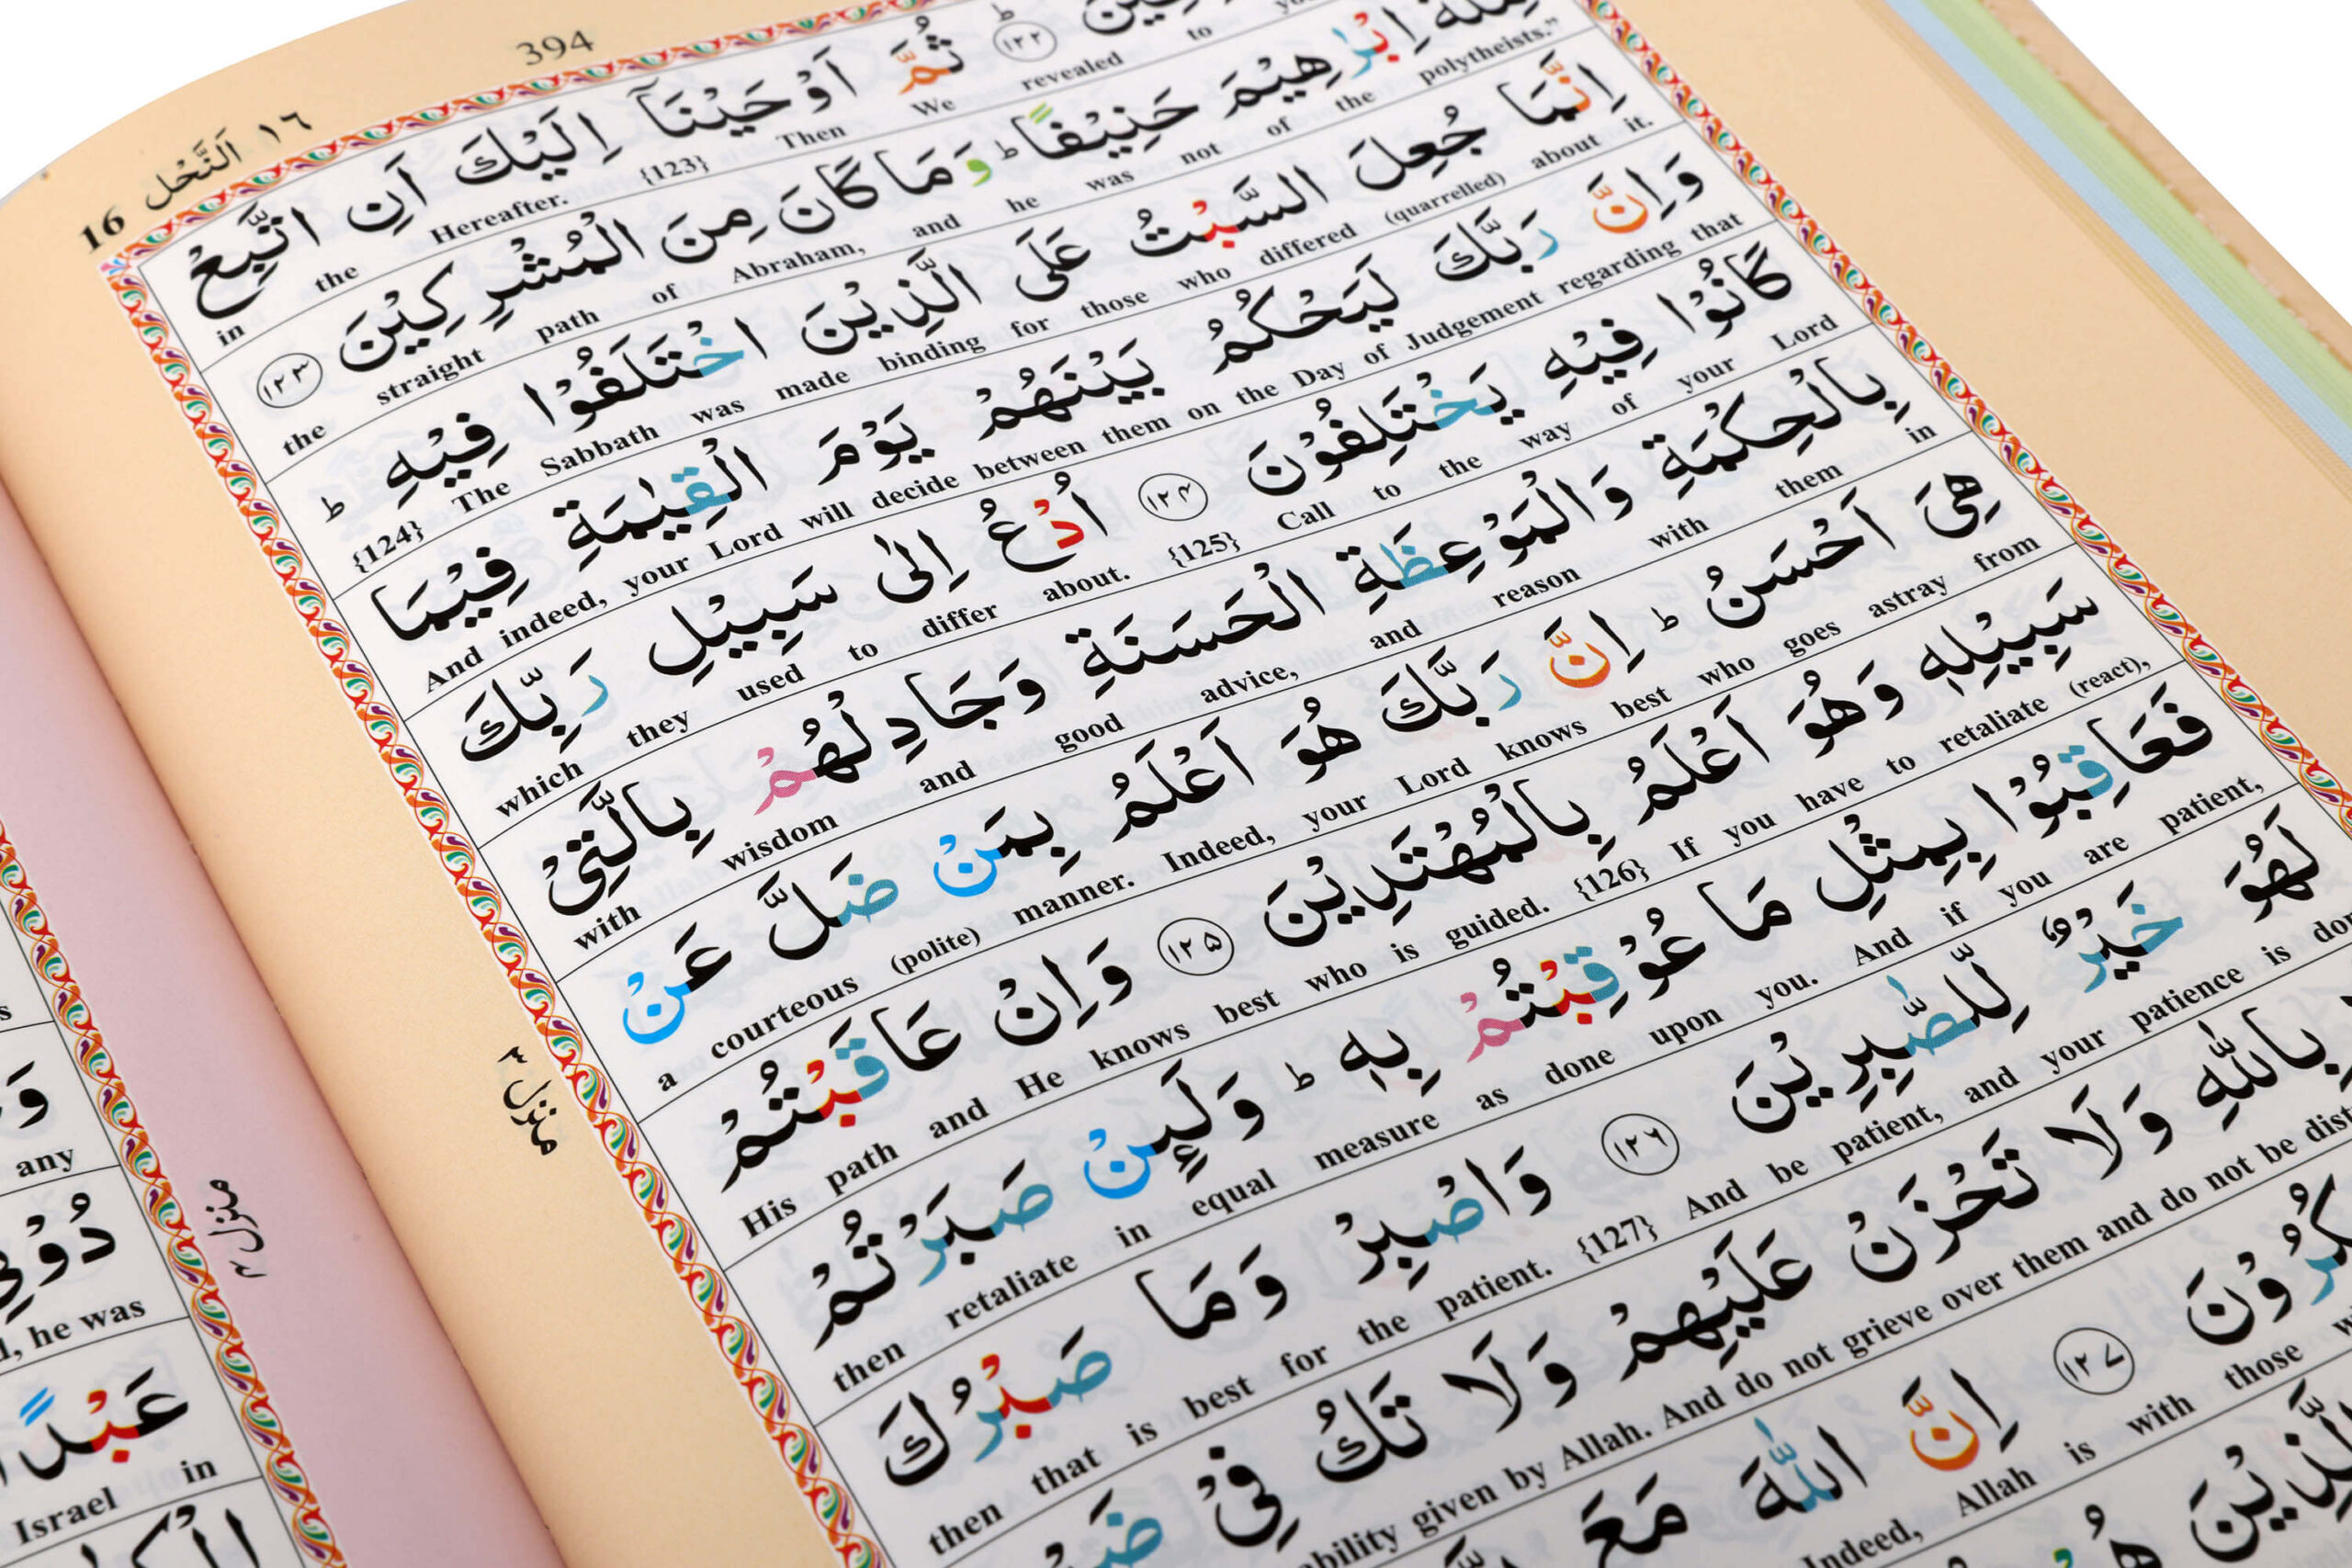 394
16 اَلنَّحْل ١٦
ثُمَّ اَوْحَيْنَآ اِلَيْكَ اَنِ اتَّبِعْ
in the Hereafter. {123} Then We revealed to
اِبْرٰهِيْمَ حَنِيْفًا ؕ وَمَا كَانَ مِنَ الْمُشْرِكِيْنَ ١٢٣
the straight path of Abraham, and he was not of the polytheists.”
اِنَّمَا جُعِلَ السَّبْتُ عَلَى الَّذِيْنَ اخْتَلَفُوْا فِيْهِ ؕ
{124} The Sabbath was made binding for those who differed (quarrelled) about it.
وَاِنَّ رَبَّكَ لَيَحْكُمُ بَيْنَهُمْ يَوْمَ الْقِيٰمَةِ فِيْمَا
And indeed, your Lord will decide between them on the Day of Judgement regarding that
كَانُوْا فِيْهِ يَخْتَلِفُوْنَ ١٢٤ اُدْعُ اِلٰى سَبِيْلِ رَبِّكَ
which they used to differ about. {125} Call to the way of your Lord
بِالْحِكْمَةِ وَالْمَوْعِظَةِ الْحَسَنَةِ وَجَادِلْهُمْ بِالَّتِيْ
with wisdom and good advice, and reason with them in
هِيَ اَحْسَنُ ؕ اِنَّ رَبَّكَ هُوَ اَعْلَمُ بِمَنْ ضَلَّ عَنْ
a courteous (polite) manner. Indeed, your Lord knows best who goes astray from
سَبِيْلِهٖ وَهُوَ اَعْلَمُ بِالْمُهْتَدِيْنَ ١٢٥ وَاِنْ عَاقَبْتُمْ
His path and He knows best who is guided. {126} If you have to retaliate (react),
فَعَاقِبُوْا بِمِثْلِ مَا عُوْقِبْتُمْ بِهٖ ؕ وَلَئِنْ صَبَرْتُمْ
then retaliate in equal measure as done upon you. And if you are patient,
لَهُوَ خَيْرٌ لِّلصّٰبِرِيْنَ ١٢٦ وَاصْبِرْ وَمَا صَبْرُكَ
then that is best for the patient. {127} And be patient, and your patience is
بِاللّٰهِ وَلَا تَحْزَنْ عَلَيْهِمْ وَلَا تَكُ فِيْ
ability given by Allah. And do not grieve over them and do not be
١٢٧ اِنَّ اللّٰهَ مَعَ
Indeed, Allah is with those
منزل ٣
منزل ٣
any
he was
عَبْدًا
Israel in